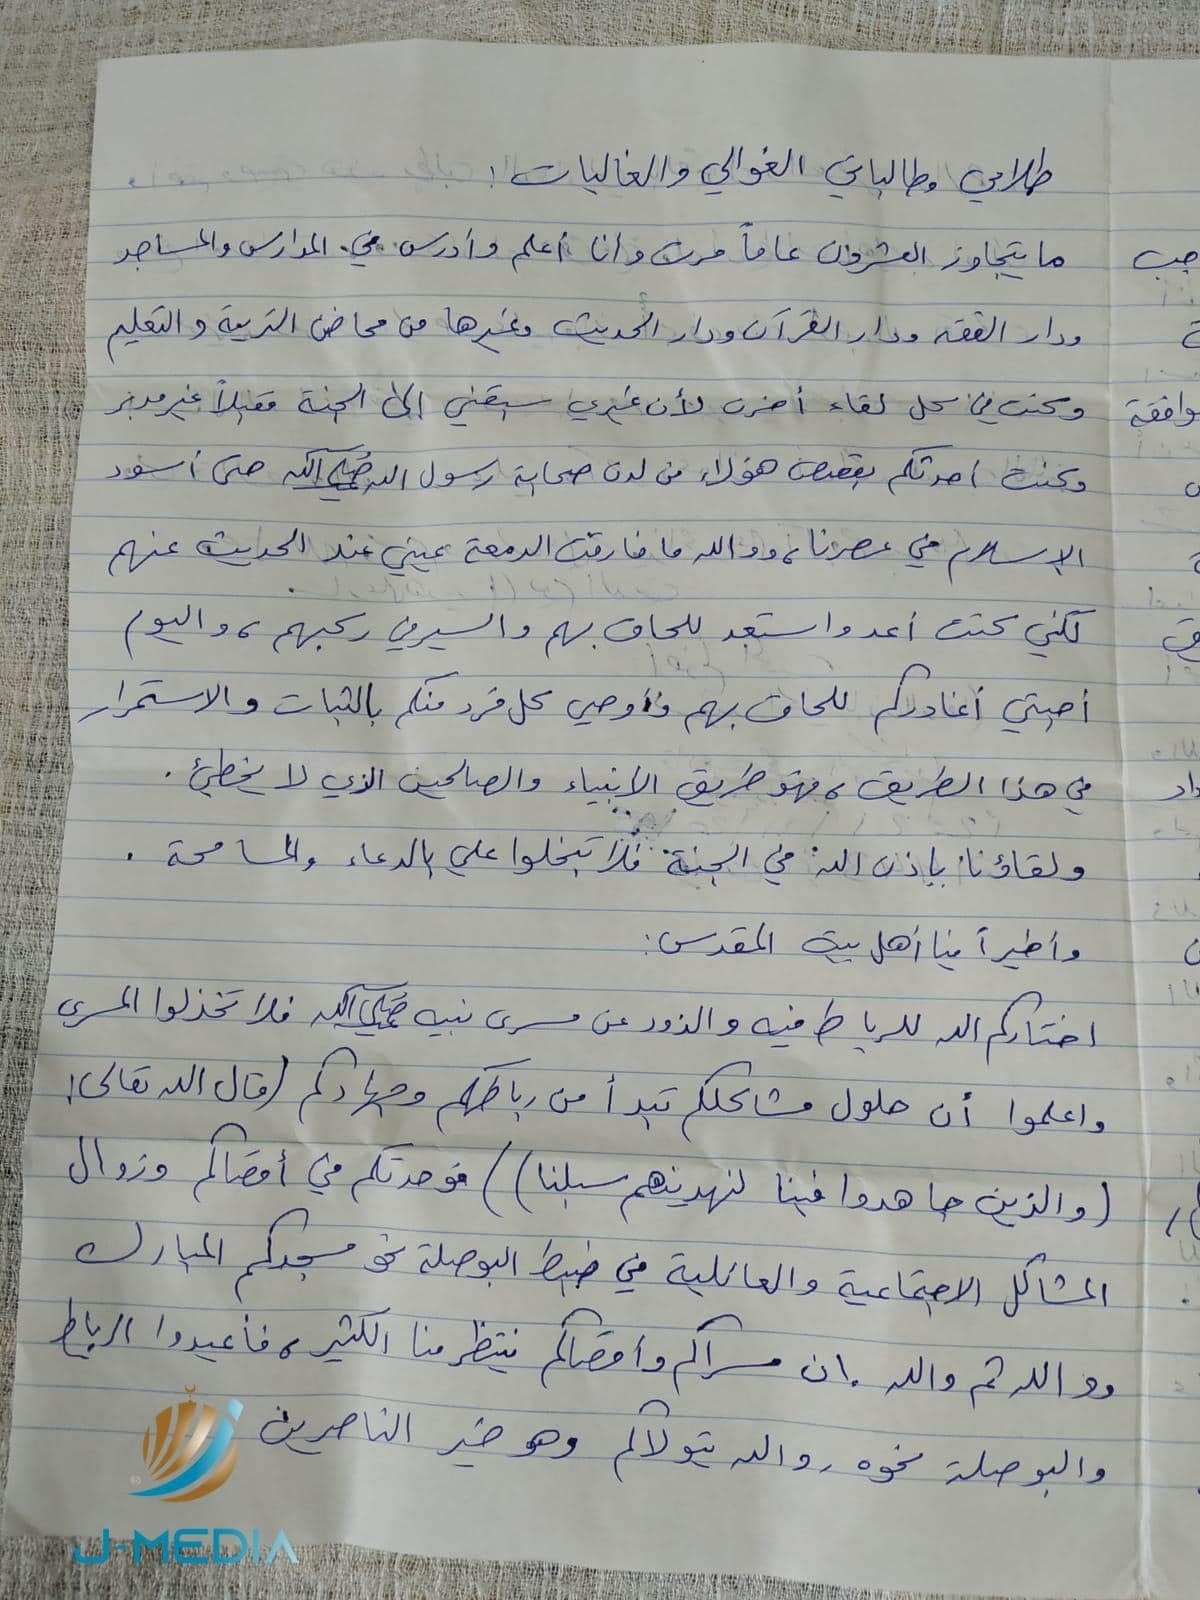 طلابي وطالباتي الغوالي والغاليات!
ما يتجاوز العشرون عاماً مرت وأنا أعلم وأدرس في المدارس والمساجد
ودار الفقه ودار القرآن ودار الحديث وغيرها من محاضن التربية والتعليم
وكنت في كل لقاء أحزن لأن غيري سبقني إلى الجنة مقبلاً غير مدبر
وكنت أحدثكم بقصص هؤلاء من لدن صحابة رسول الله ﷺ حتى أسود
الإسلام في عصرنا، ووالله ما فارقت الدمعة عيني عند الحديث عنهم
لكني كنت أعد وأستعد للحاق بهم والسير في ركبهم، واليوم
أحبتي أغادركم للحاق بهم وأوصي كل فرد منكم بالثبات والاستمرار
في هذا الطريق، فهو طريق الأنبياء والصالحين الذي لا يخطئ.
ولقاؤنا بإذن الله في الجنة فلا تبخلوا علي بالدعاء والمسامحة.
وأخيراً يا أهل بيت المقدس:
اختاركم الله للرباط فيه والذود عن مسرى نبيه ﷺ فلا تخذلوا المسرى
واعلموا أن حلول مشاكلكم تبدأ من رباطكم وجهادكم (قال الله تعالى:
(والذين جاهدوا فينا لنهدينهم سبلنا)) فوحدتكم في أقصاكم وزوال
المشاكل الاجتماعية والعائلية في ضبط البوصلة نحو مسجدكم المبارك
ووالله ثم والله إن مسراكم وأقصاكم ينتظر منا الكثير، فأعيدوا الرباط
والبوصلة نحوه، والله يتولاكم وهو خير الناصرين
J-MEDIA